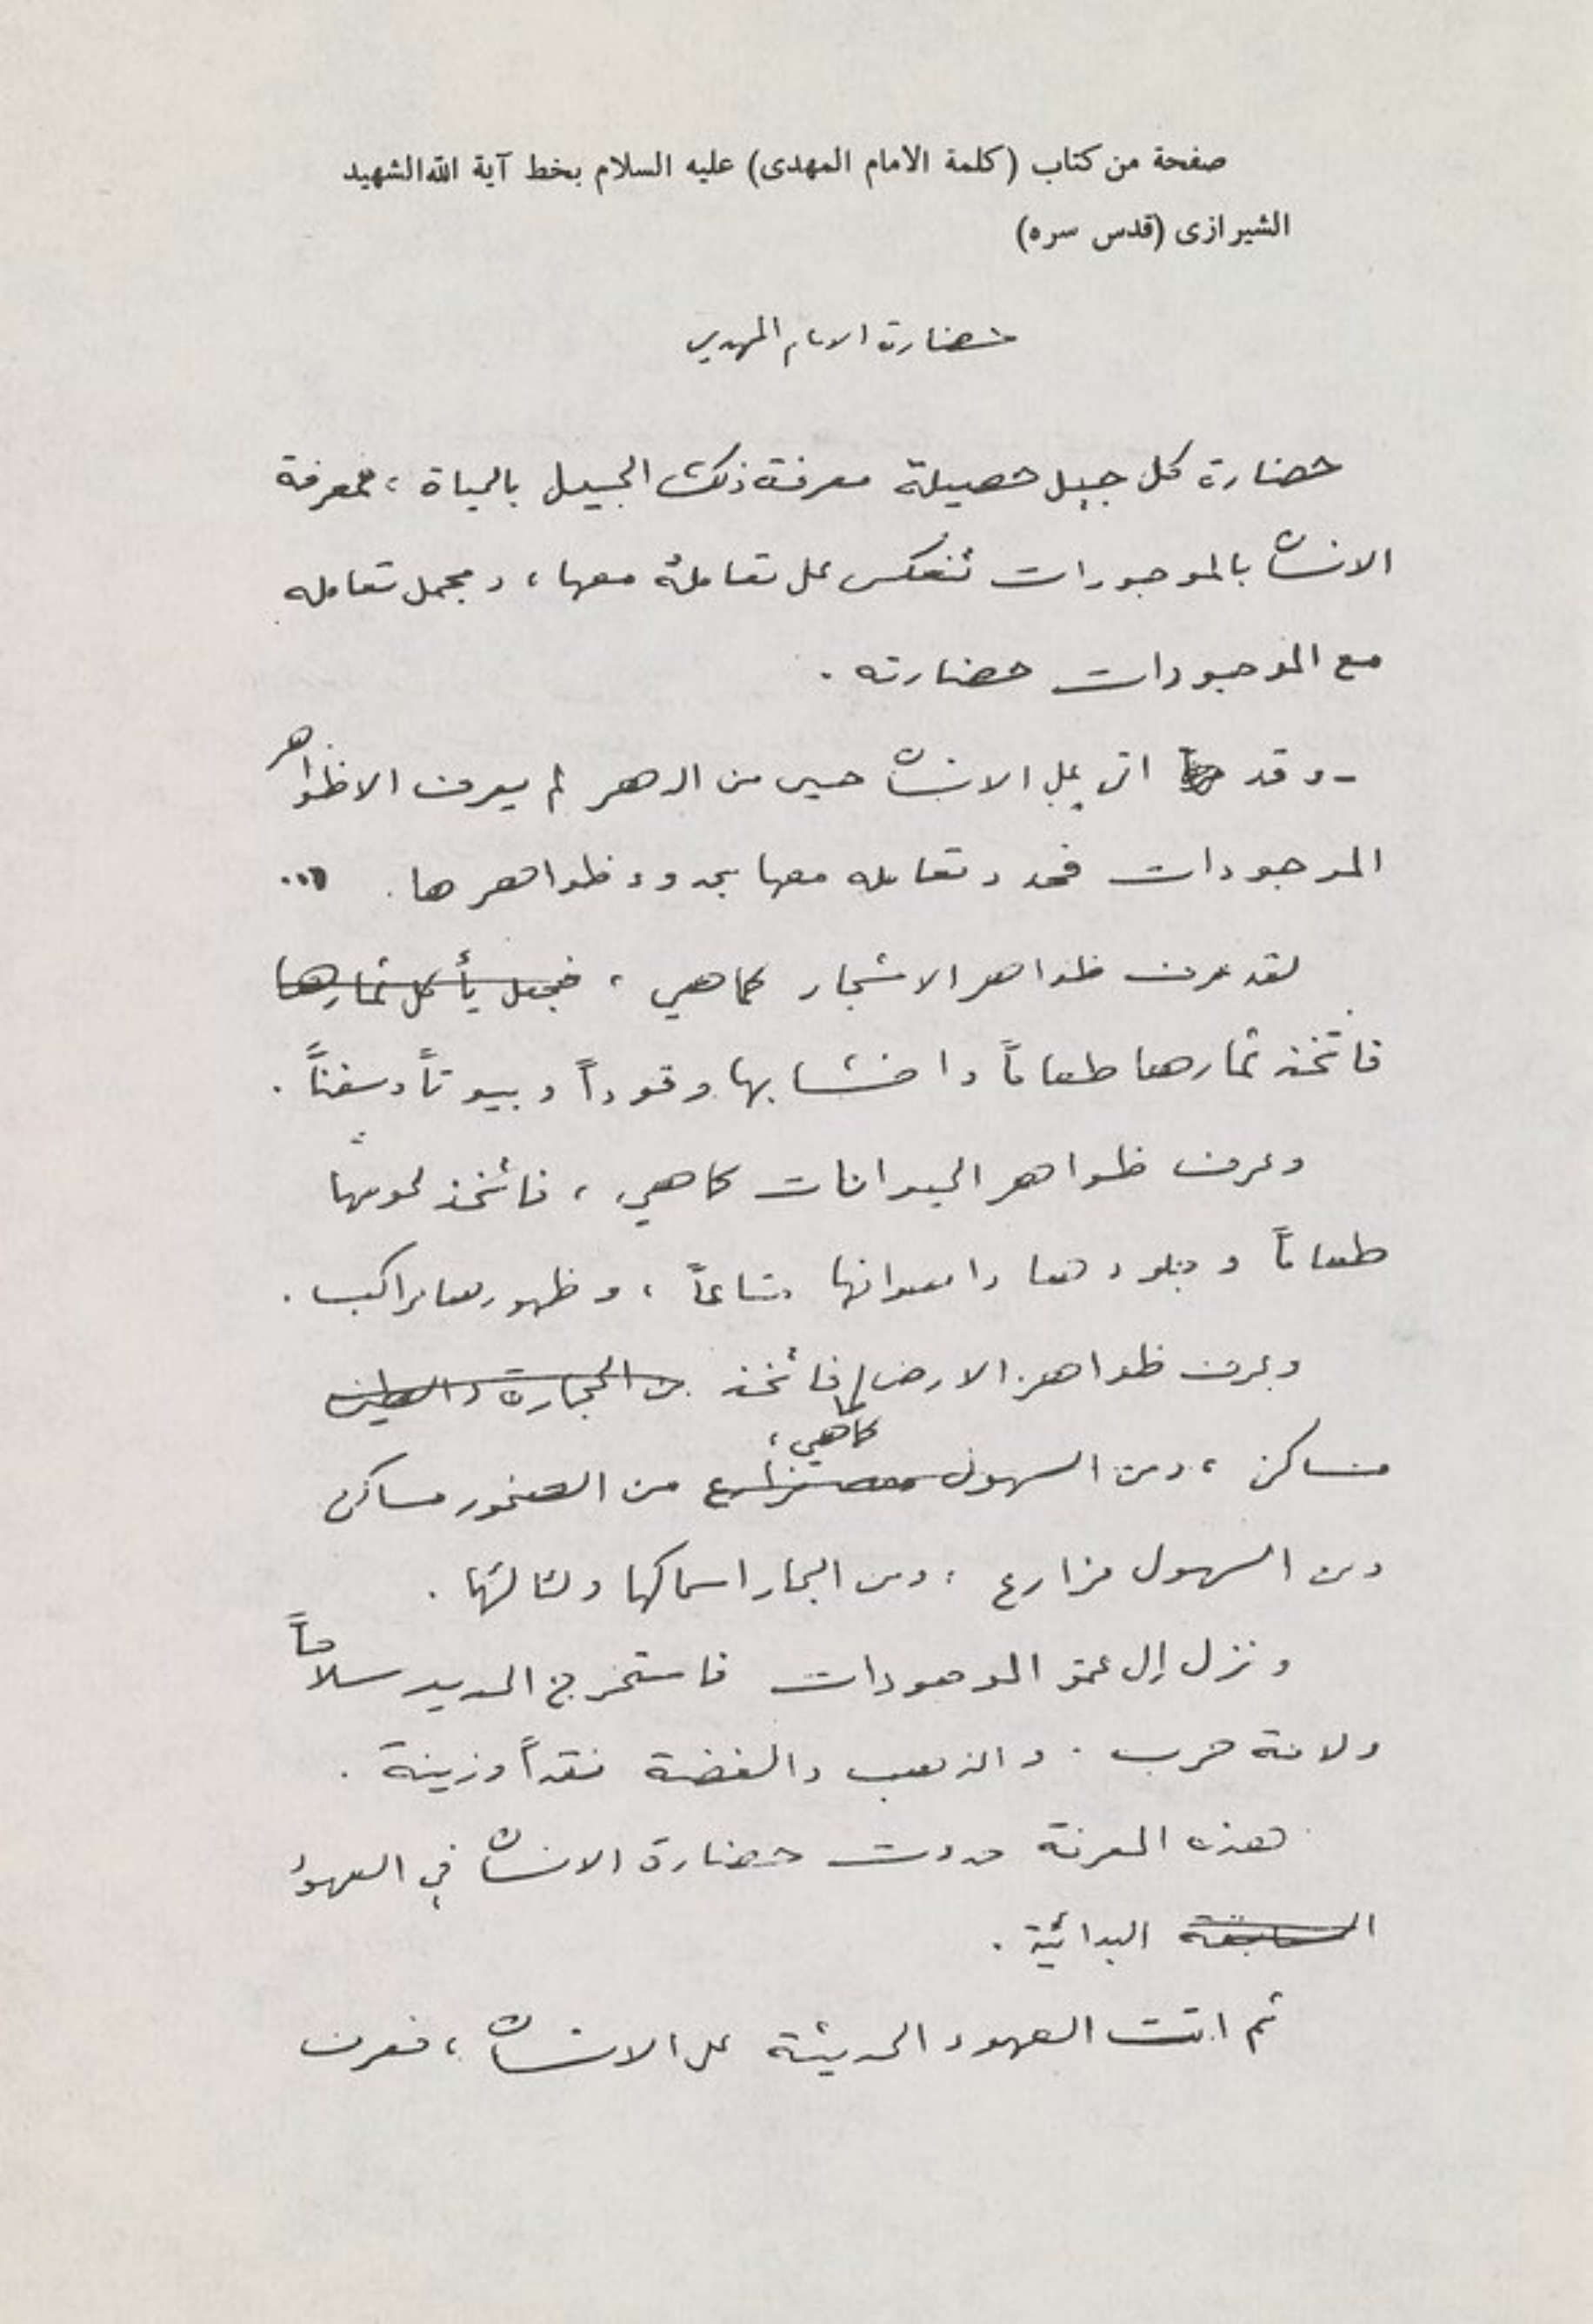 صفحة من كتاب (كلمة الامام المهدى) عليه السلام بخط آية الله الشهيد
الشيرازى (قدس سره)
حضارة الامام المهدي
حضارة كل جيل حصيلة معرفة ذلك الجيل بالحياة ، فمعرفة
الانسان بالموجودات تنعكس على تعامله معها ، ومجمل تعامله
مع الموجودات حضارته .
- وقد اتى على الانسان حين من الدهر لم يعرف الا ظواهر
الموجودات فحدد تعامله معها بحدود ظواهرها . ...
لقد عرف ظواهر الاشجار كما هي ، فجعل يأكل ثمارها
فاتخذ ثمارها طعاماً واخشابها وقوداً وبيوتاً وسفناً .
وعرف ظواهر الحيوانات كما هي ، فاتخذ لحومها
طعاماً وجلودها واصوافها متاعاً ، وظهورها مراكب .
وعرف ظواهر الارض كما هي ، فاتخذ من الحجارة والطين
مساكن ، ومن السهول مزارع من الصخور مساكن
ومن السهول مزارع ، ومن البحار اسماكها ولئالئها .
ونزل إلى عمق الموجودات فاستخرج الحديد سلاحاً
ولامة حرب . والذهب والفضة نقداً وزينة .
هذه المعرفة حددت حضارة الانسان في العهود
السابقة البدائية .
ثم اتت العهود الحديثة على الانسان ، فعرف